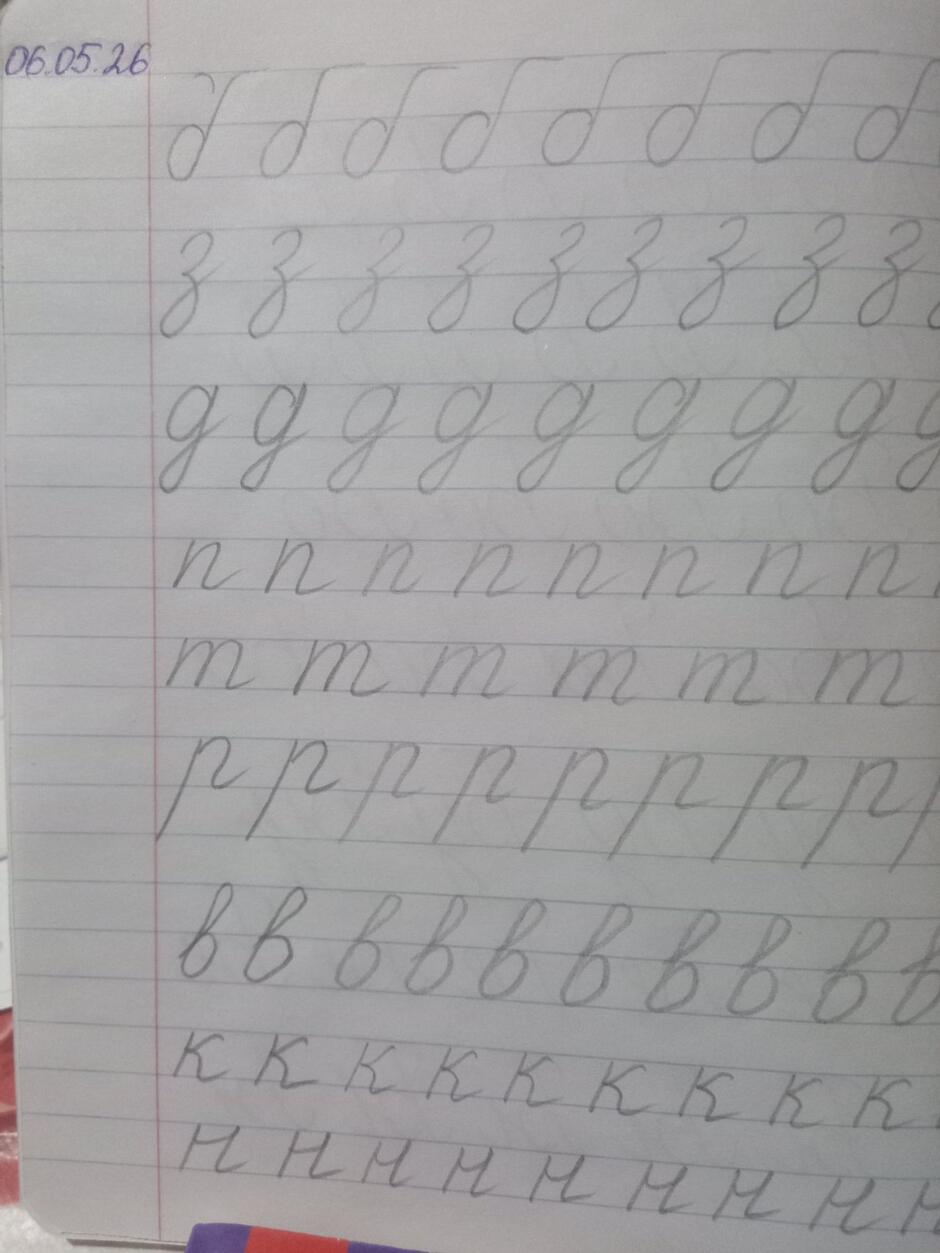 06.05.26
б б б б б б б б
з з з з з з з з з
д д д д д д д д д
п п п п п п п п
т т т т т т
р р р р р р р р
в в в в в в в в в в
к к к к к к к к к
н н н н н н н н н